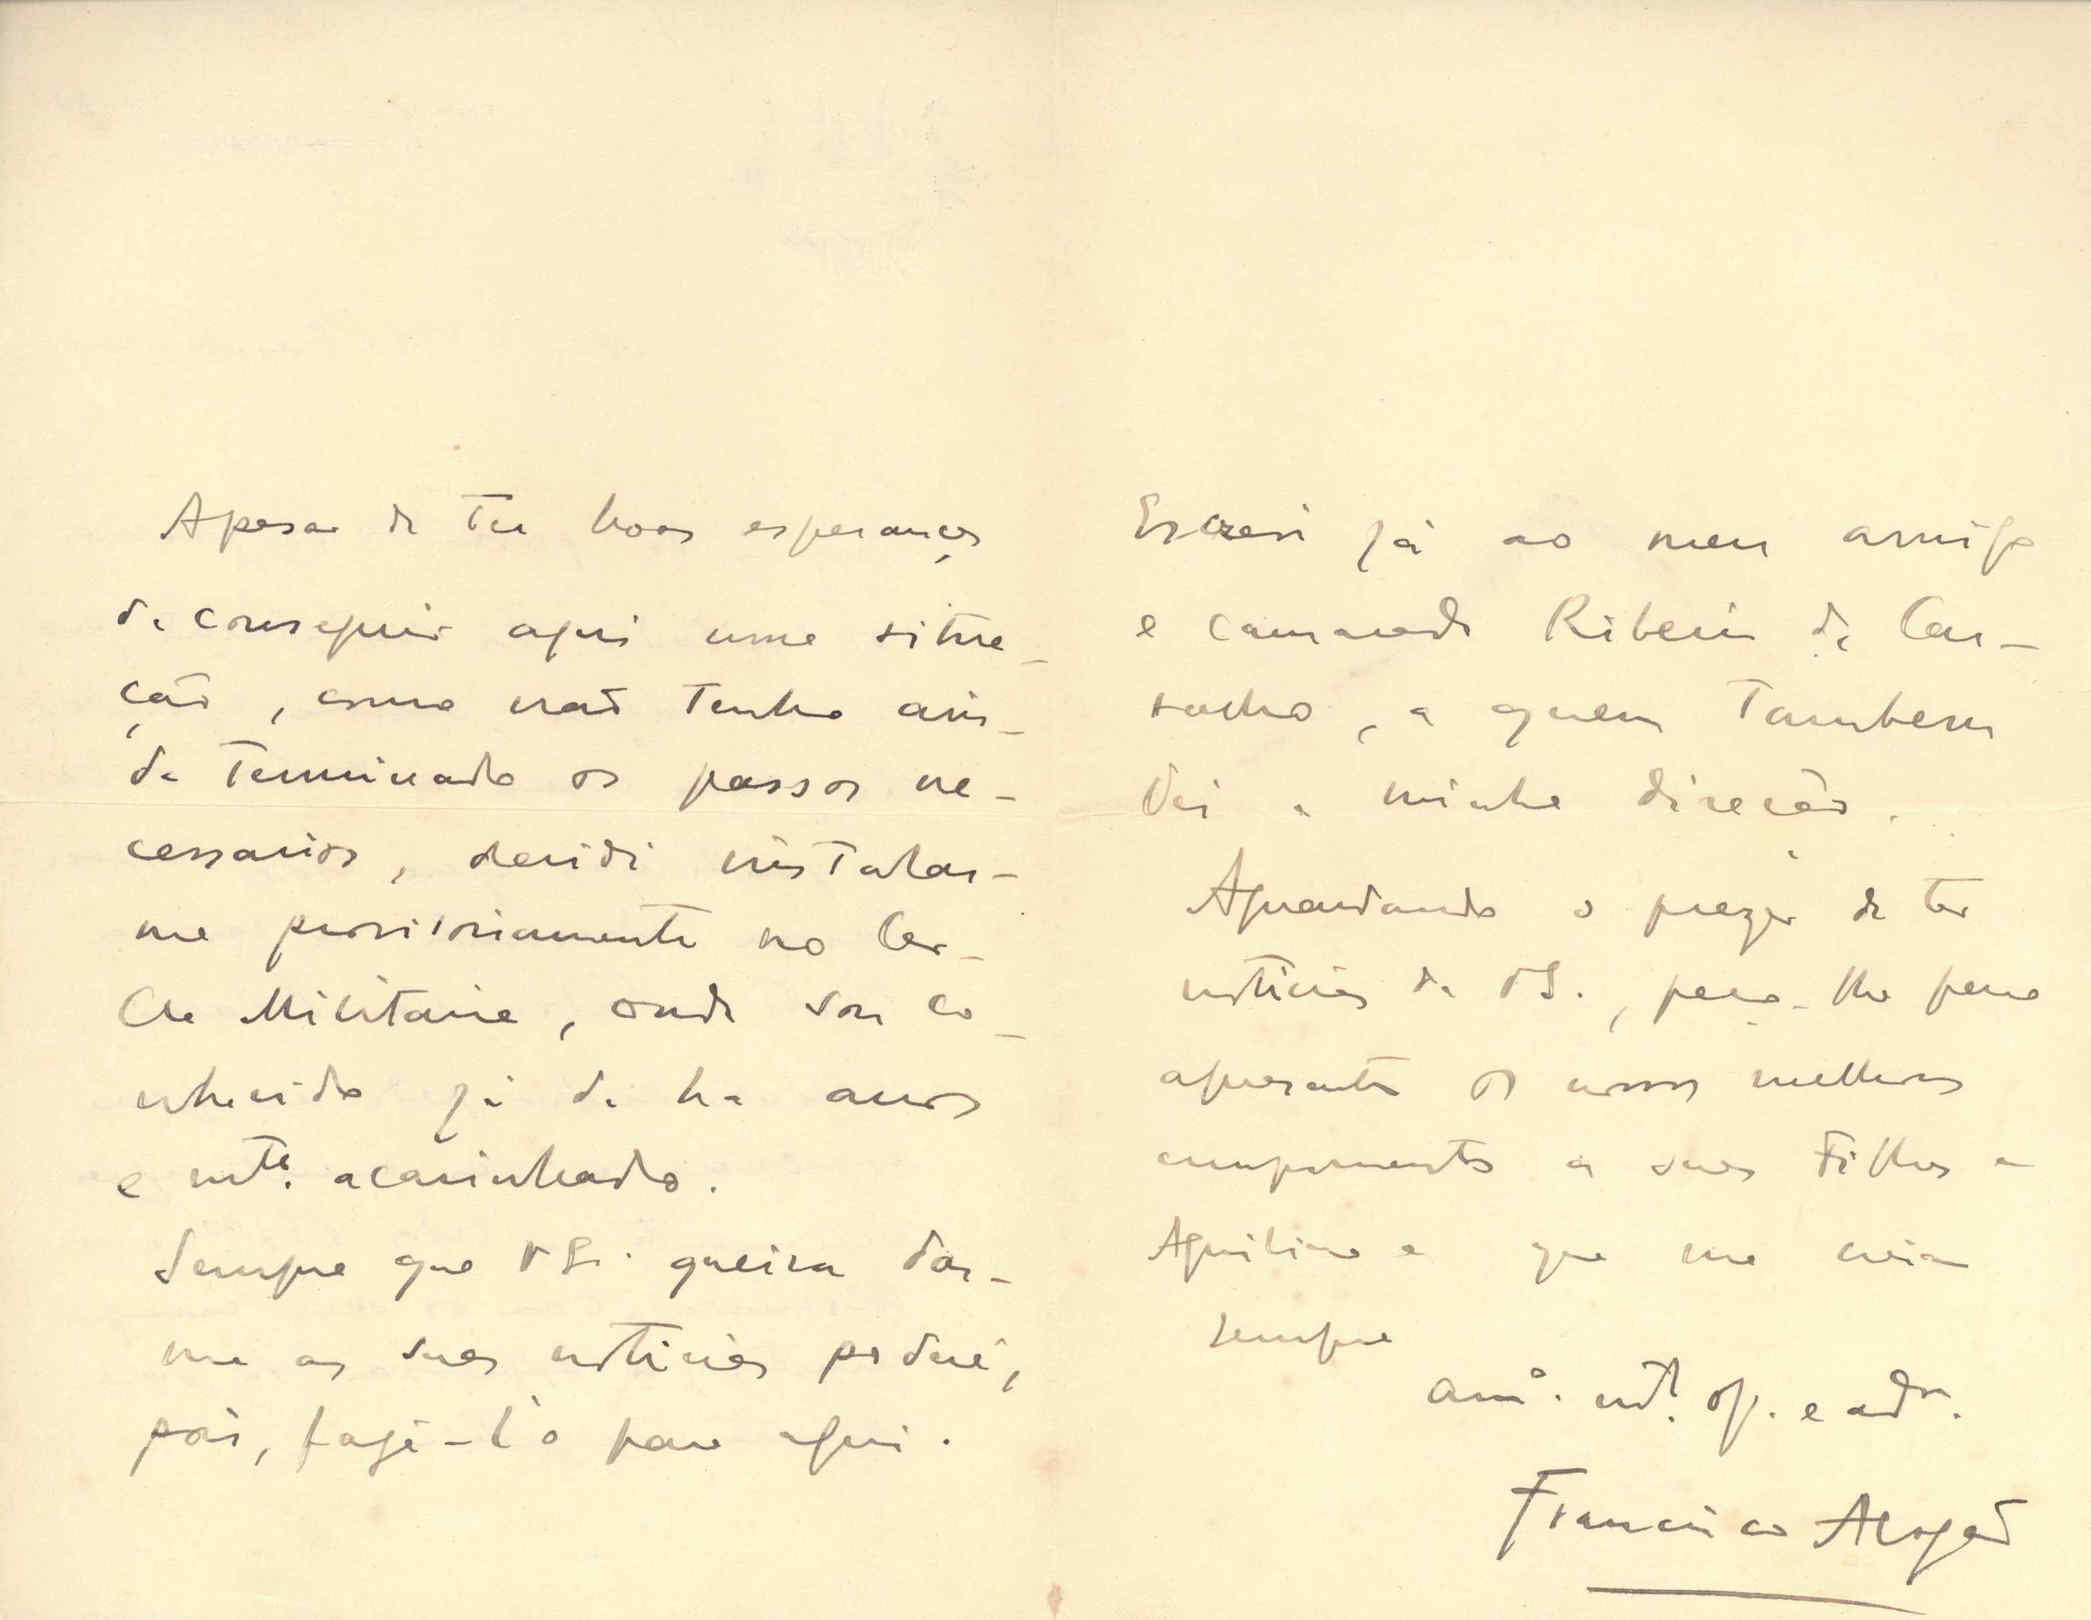 Apesar de ter boas esperanças
de conseguir aqui uma situa-
ção, como não tenho ain-
da terminado os passos ne-
cessarios, decidi instalar-
me provisoriamente no Cer-
cle Militaire, onde sou co-
nhecido já de ha anos
e mtº. acarinhado.
Sempre que V. Ex. queira dar-
me as suas noticias poderá,
pois, fazê-l'o para aqui.
Escrevi já ao meu amigo
e camarada Ribeiro de Car-
valho, a quem tambem
dei a minha direcção.
Aguardando o prazer de ter
noticias de V. Ex., peço-lhe para
apresentar os nossos melhores
cumprimentos a suas Filhas e
Aquilino e que me creia
sempre
amº. mtº. obg. e adr.
Francisco Aragão